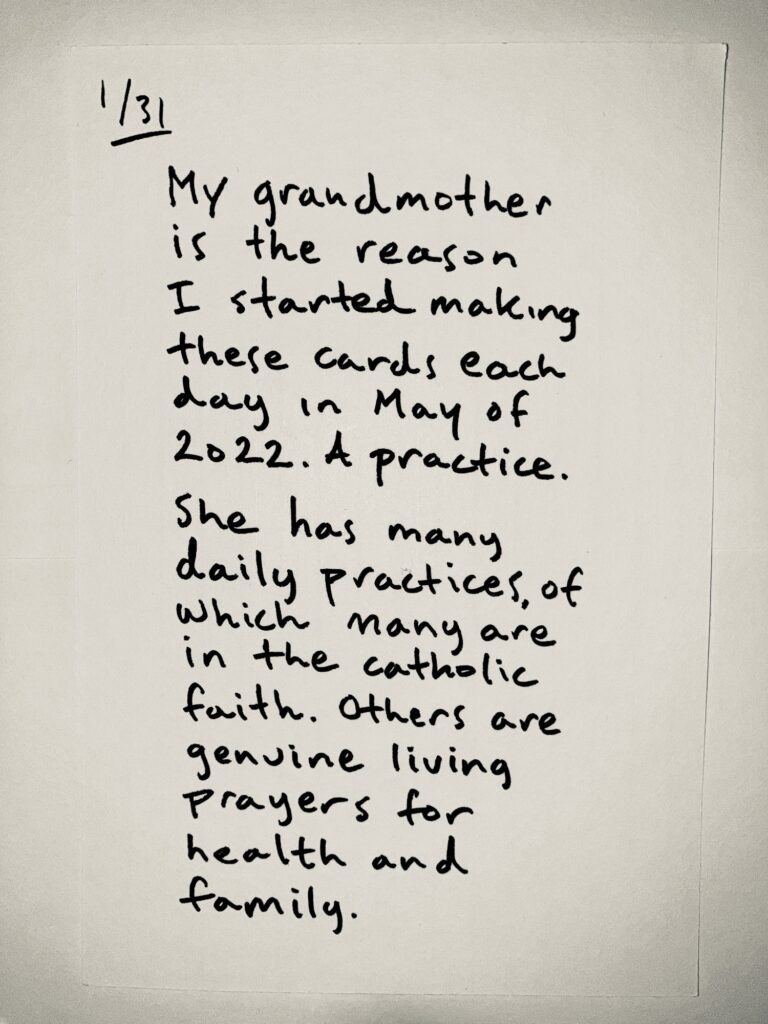 1/31
My grandmother
is the reason
I started making
these cards each
day in May of
2022. A practice.
She has many
daily practices, of
which many are
in the catholic
faith. Others are
genuine living
prayers for
health and
family.